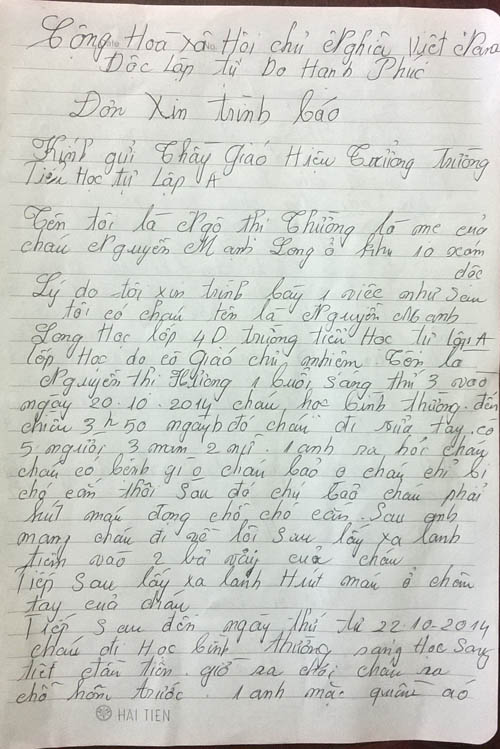 Cộng Hoà xã Hội chủ Nghĩa Việt Nam
Dốc Lập tự Do Hanh Phúc
Đơn Xin trình báo
Kính gửi Thầy Giáo Hiệu Trưởng trường
Tiểu Học tự Lập A
Tên tôi là Ngô thi Thưởng là mẹ cuả
chau Nguyễn Manh Long ở khu 10 xóm
dốc
Lý do tôi xin trình bày 1 viêc như sau
tôi có chau tên là Nguyễn Manh
Long Học lớp 4D trường tiểu Học tự lập A
lớp Học do cô Giáo chủ nhiêm Tên là
Nguyễn thi Hương 1 buổi sang thứ 3 vào
ngày 20.10.2014 chau học binh thường đến
chiều 3h50 ngay đó cháu đi rửa tay có
5 người 3 nam 2 nữ. 1 anh ra hỏi cháu
cháu có bênh gi o chau bảo o chau chỉ bi
chó cắn thôi Sau đó chú bảo chau phải
hut mau dong chỗ chó cắn Sau anh
mang chau đi về lối sau lấy xa lanh
tiêm vào 2 bả vây cuả chau
Tiếp sau lấy xa lanh Hut mau ở chân
tay cuả chau
Tiếp Sau đến ngày thứ tư 22.10.2014
chau đi Học binh thường sang Học Sang
tiết đầu tiên. giờ ra chơi chau ra
chỗ hôm trước 1 anh mặc quần aó
HAI TIEN